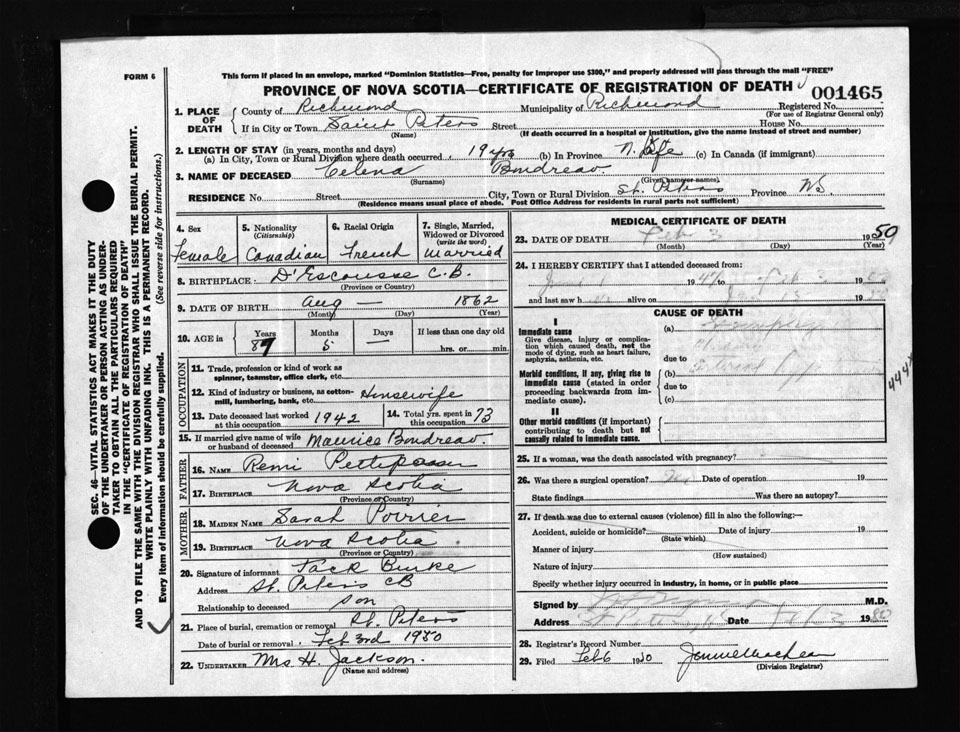 FORM 6
This form if placed in an envelope, marked "Dominion Statistics—Free, penalty for improper use $300," and properly addressed will pass through the mail "FREE"
PROVINCE OF NOVA SCOTIA—CERTIFICATE OF REGISTRATION OF DEATH
001465
1. PLACE OF DEATH
County of Richmond Municipality of Richmond Registered No.
(For use of Registrar General only)
If in City or Town Saint Peters Street House No.
(Name) (If death occurred in a hospital or institution, give the name instead of street and number)
2. LENGTH OF STAY (in years, months and days)
(a) In City, Town or Rural Division where death occurred 19 yrs (b) In Province N. Life (c) In Canada (if immigrant)
3. NAME OF DECEASED Celena Boudreau
(Surname) (Given name or names)
RESIDENCE No. Street City, Town or Rural Division St. Peters Province NS
(Residence means usual place of abode. Post Office Address for residents in rural parts not sufficient)
4. Sex
Female
5. Nationality
(Citizenship)
Canadian
6. Racial Origin
French
7. Single, Married, Widowed or Divorced
(write the word)
Married
8. BIRTHPLACE D'Escousse C.B.
(Province or Country)
9. DATE OF BIRTH Aug — 1862
(Month) (Day) (Year)
10. AGE in
Years Months Days If less than one day old
87 5 — hrs. or min.
OCCUPATION
11. Trade, profession or kind of work as spinner, teamster, office clerk, etc.
12. Kind of industry or business, as cotton-mill, lumbering, bank, etc. Housewife
13. Date deceased last worked at this occupation 1942
14. Total yrs. spent in this occupation 73
15. If married give name of wife or husband of deceased Maurice Boudreau.
FATHER
16. NAME Remi
17. BIRTHPLACE Nova Scotia
(Province or Country)
MOTHER
18. MAIDEN NAME Sarah Poirier
19. BIRTHPLACE Nova Scotia
(Province or Country)
20. Signature of informant Jack Burke
Address St. Peters CB
Relationship to deceased son
21. Place of burial, cremation or removal St. Peters
Date of burial or removal Feb 3rd 1950
22. UNDERTAKER Mrs H. Jackson.
(Name and address)
MEDICAL CERTIFICATE OF DEATH
23. DATE OF DEATH Feb 3 1950
(Month) (Day) (Year)
24. I HEREBY CERTIFY that I attended deceased from:
19 to 19
and last saw h alive on 19
CAUSE OF DEATH
I
Immediate cause
Give disease, injury or complication which caused death, not the mode of dying, such as heart failure, asphyxia, asthenia, etc.
(a)
due to
Morbid conditions, if any, giving rise to immediate cause (stated in order proceeding backwards from immediate cause).
(b)
due to
(c)
II
Other morbid conditions (if important) contributing to death but not causally related to immediate cause.
25. If a woman, was the death associated with pregnancy?
26. Was there a surgical operation? No Date of operation 19
State findings Was there an autopsy?
27. If death was due to external causes (violence) fill in also the following:—
Accident, suicide or homicide? Date of injury 19
(State which)
Manner of injury
(How sustained)
Nature of injury
Specify whether injury occurred in industry, in home, or in public place
Signed by M.D.
Address St Peters Date Feb 3 1950
28. Registrar's Record Number
29. Filed Feb 6 1950
(Division Registrar)
SEC. 46—VITAL STATISTICS ACT MAKES IT THE DUTY
OF THE UNDERTAKER OR PERSON ACTING AS UNDER-
TAKER TO OBTAIN ALL THE PARTICULARS REQUIRED
IN THE "CERTIFICATE OF REGISTRATION OF DEATH"
AND TO FILE THE SAME WITH THE DIVISION REGISTRAR WHO SHALL ISSUE THE BURIAL PERMIT.
WRITE PLAINLY WITH UNFADING INK. THIS IS A PERMANENT RECORD.
Every item of information should be carefully supplied. (See reverse side for instructions.)